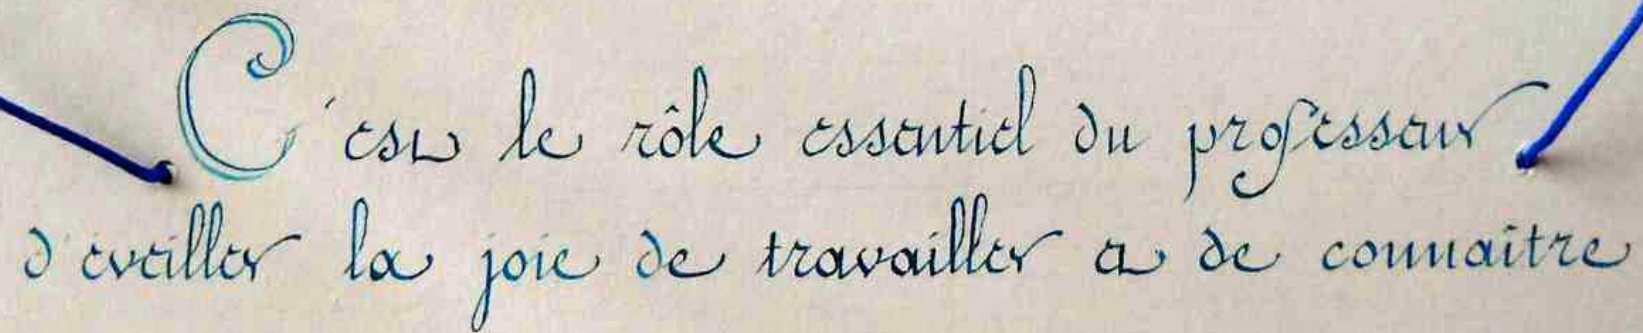 C'est le rôle essentiel du professeur
d'eveiller la joie de travailler et de connaître